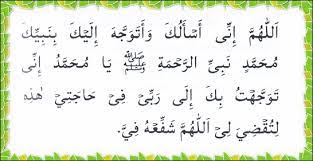 اَللّٰهُمَّ اِنِّیْ اَسْأَلُكَ وَاَتَوَجَّهُ اِلَیْكَ بِنَبِیِّكَ
مُحَمَّدٍ نَبِیِّ الرَّحْمَةِ ﷺ یَا مُحَمَّدُ اِنِّیْ
تَوَجَّهْتُ بِكَ اِلٰی رَبِّیْ فِیْ حَاجَتِیْ هٰذِهٖ
لِتُقْضٰی لِیْ اَللّٰهُمَّ شَفِّعْهُ فِیَّ۔